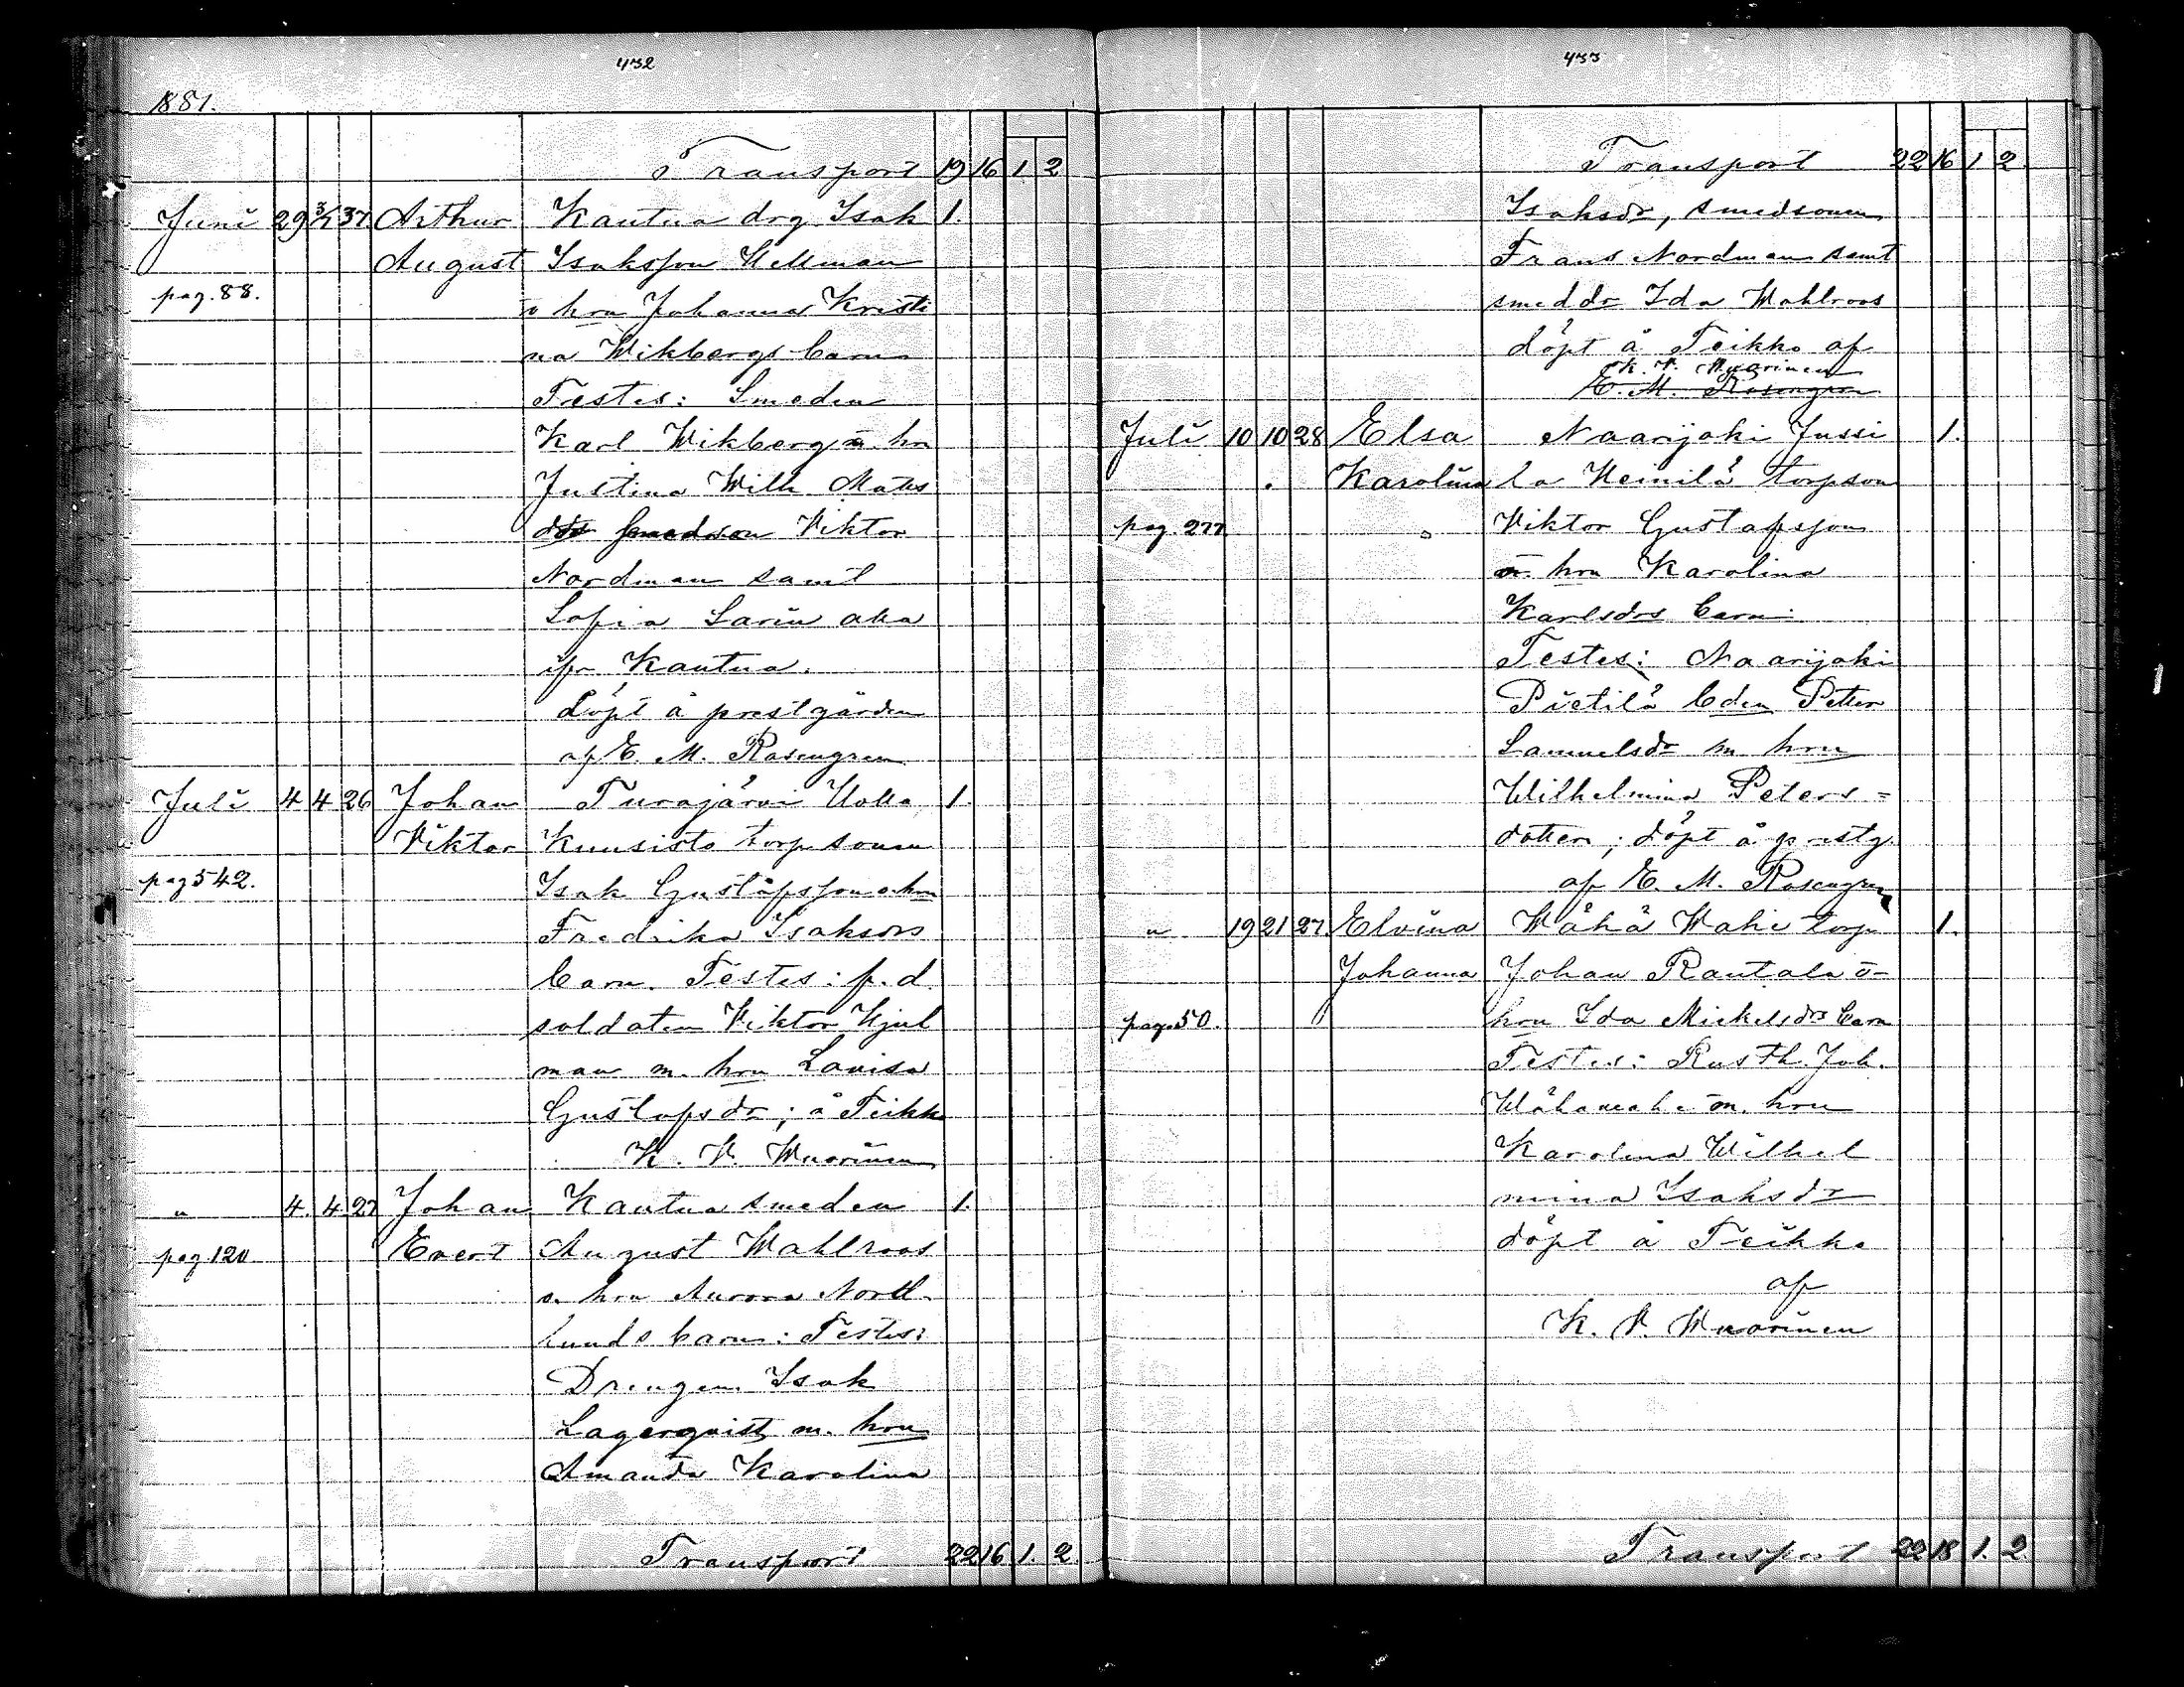 432
1881.
Transport 19 16 1. 2
Juni 29 3/7 37. Arthur Kautua drg Isak 1.
August Isaksson Hellman
pag. 88. o hru Johanna Kristi
na Wikbergs barn
Testes: Smeden
Karl Wikberg m. hru
Justina Wilh. Matts
dtr Smedson Viktor
Nordman samt
Sofia Sarin alla
ifr Kautua.
döpt å prestgården
af E. M. Rosengren
Juli 4 4 26 Johan Turajärvi Uotta 1.
Viktor Kuusisto torpsonen
pag 542. Isak Gustafsson o hru
Fredrika Isaksdrs
barn. Testes: f. d.
soldaten Viktor Hjul
man m. hru Lovisa
Gustafsdr; å Teikko
K. V. Wuorinen
" 4. 4. 27 Johan Kautua smeden 1.
pag 120 Evert August Wahlroos
o. hru Aurora Nord
lunds barn: Testes:
Drengen Isak
Lagerqvist m. hru
Amanda Karolina
Transport 22 16 1. 2
433
Transport 22 16 1 2.
Isaksdr, smedsonen
Frans Nordman samt
smeddr Ida Wahlroos
döpt å Teikko af
K. V. Wuorinen
E. M. Rosengren
Juli 10 10 28 Elsa Naarijoki Jussi 1.
Karolina la Heinilä torpson
pag. 277 Viktor Gustafsson
o. hru Karolina
Karlsdrs barn
Testes: Naarijoki
Pietilä bden Petter
Samuelsdr m hru
Wilhelmina Peters=
dotter; döpt å prestg.
af E. M. Rosengren
" 19 21 27. Elvina Wähä Wahe torp 1.
Johanna Johan Rautala o
pag. 50. hru Ida Mickelsdrs barn
Testes: Rusth. Joh.
Wähawahe m. hru
Karolina Wilhel
mina Isaksdr
döpt å Teikko
af
K. V. Wuorinen
Transport 22 18 1. 2.